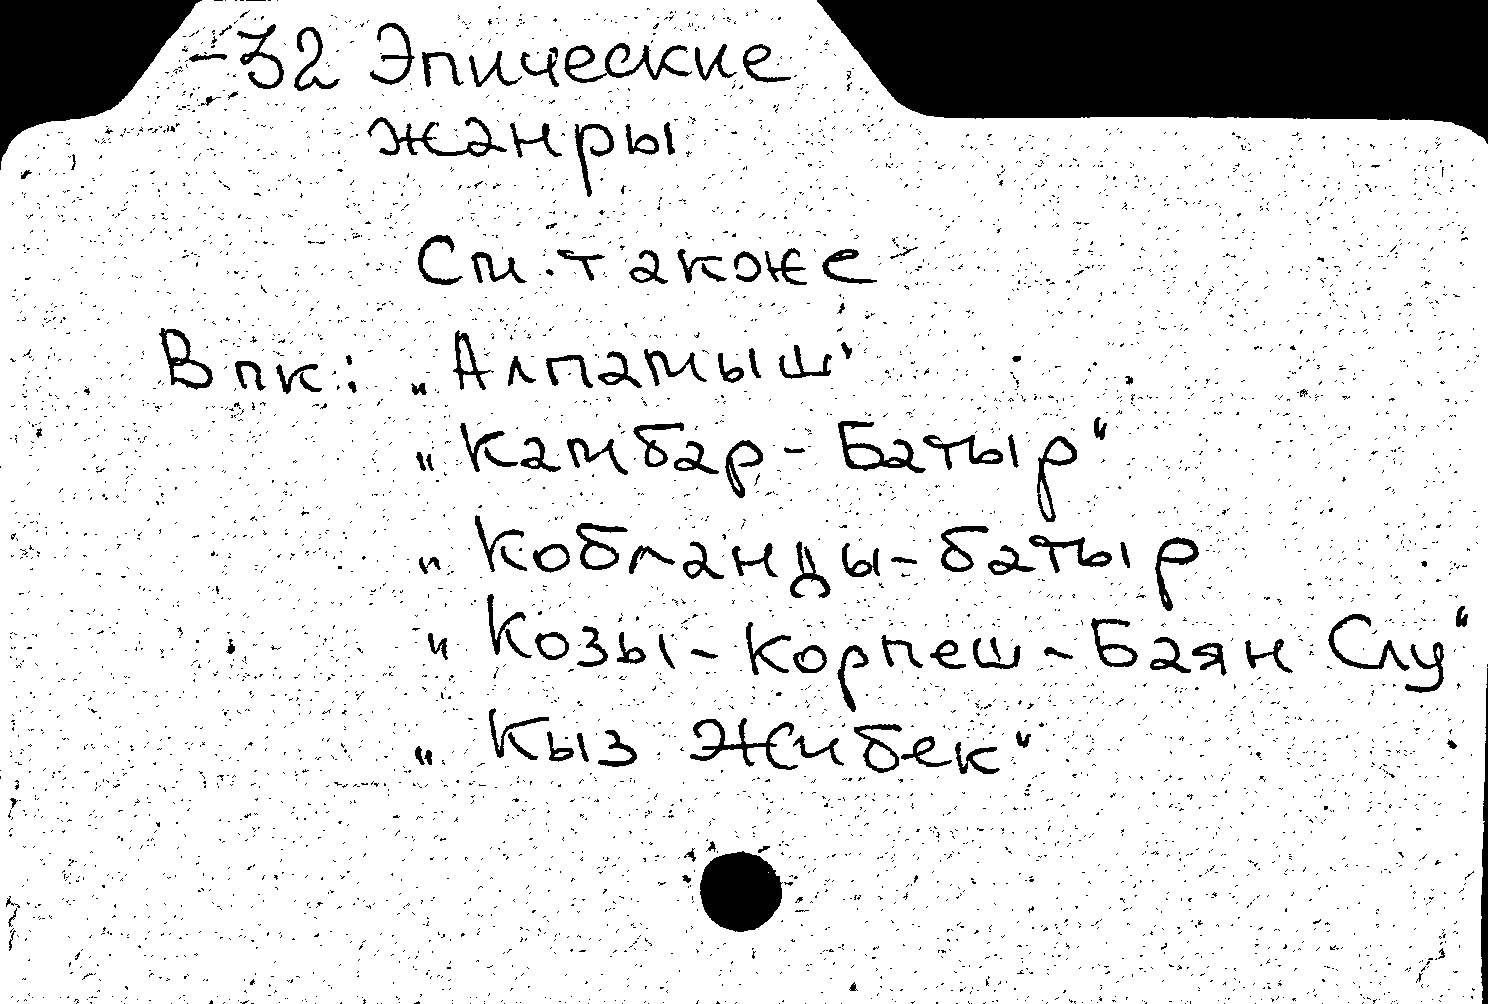 -32 Эпические
жанры
См. также
В пк: „Алпамыш"
„Камбар-Батыр"
„Кобланды-батыр
„Козы-Корпеш-Баян Слу"
„Кыз Жибек"